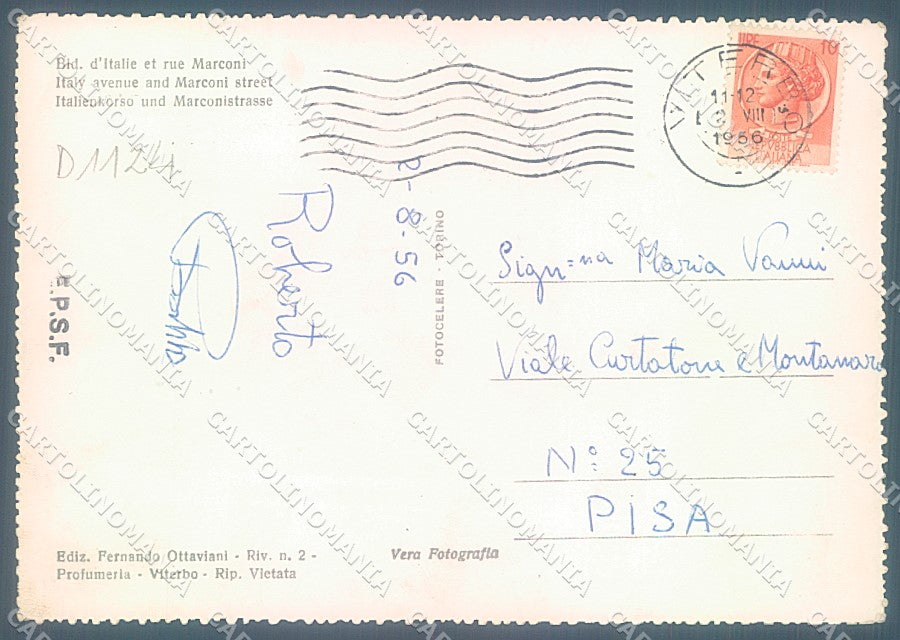 Bld. d'Italie et rue Marconi
Italy avenue and Marconi street
Italienkorso und Marconistrasse
D112
E.P.S.F.
Roberto
2-8-56
FOTOCELERE - TORINO
LIRE 10
POSTE
REPVBBLICA
ITALIANA
VITERBO
11-12
VIII
1956
Sign:na Maria Vanni
Viale Curtatone e Montanara
N° 25
PISA
Ediz. Fernando Ottaviani - Riv. n. 2 -
Profumeria - Viterbo - Rip. Vietata
Vera Fotografia
CARTOLINOMANIA